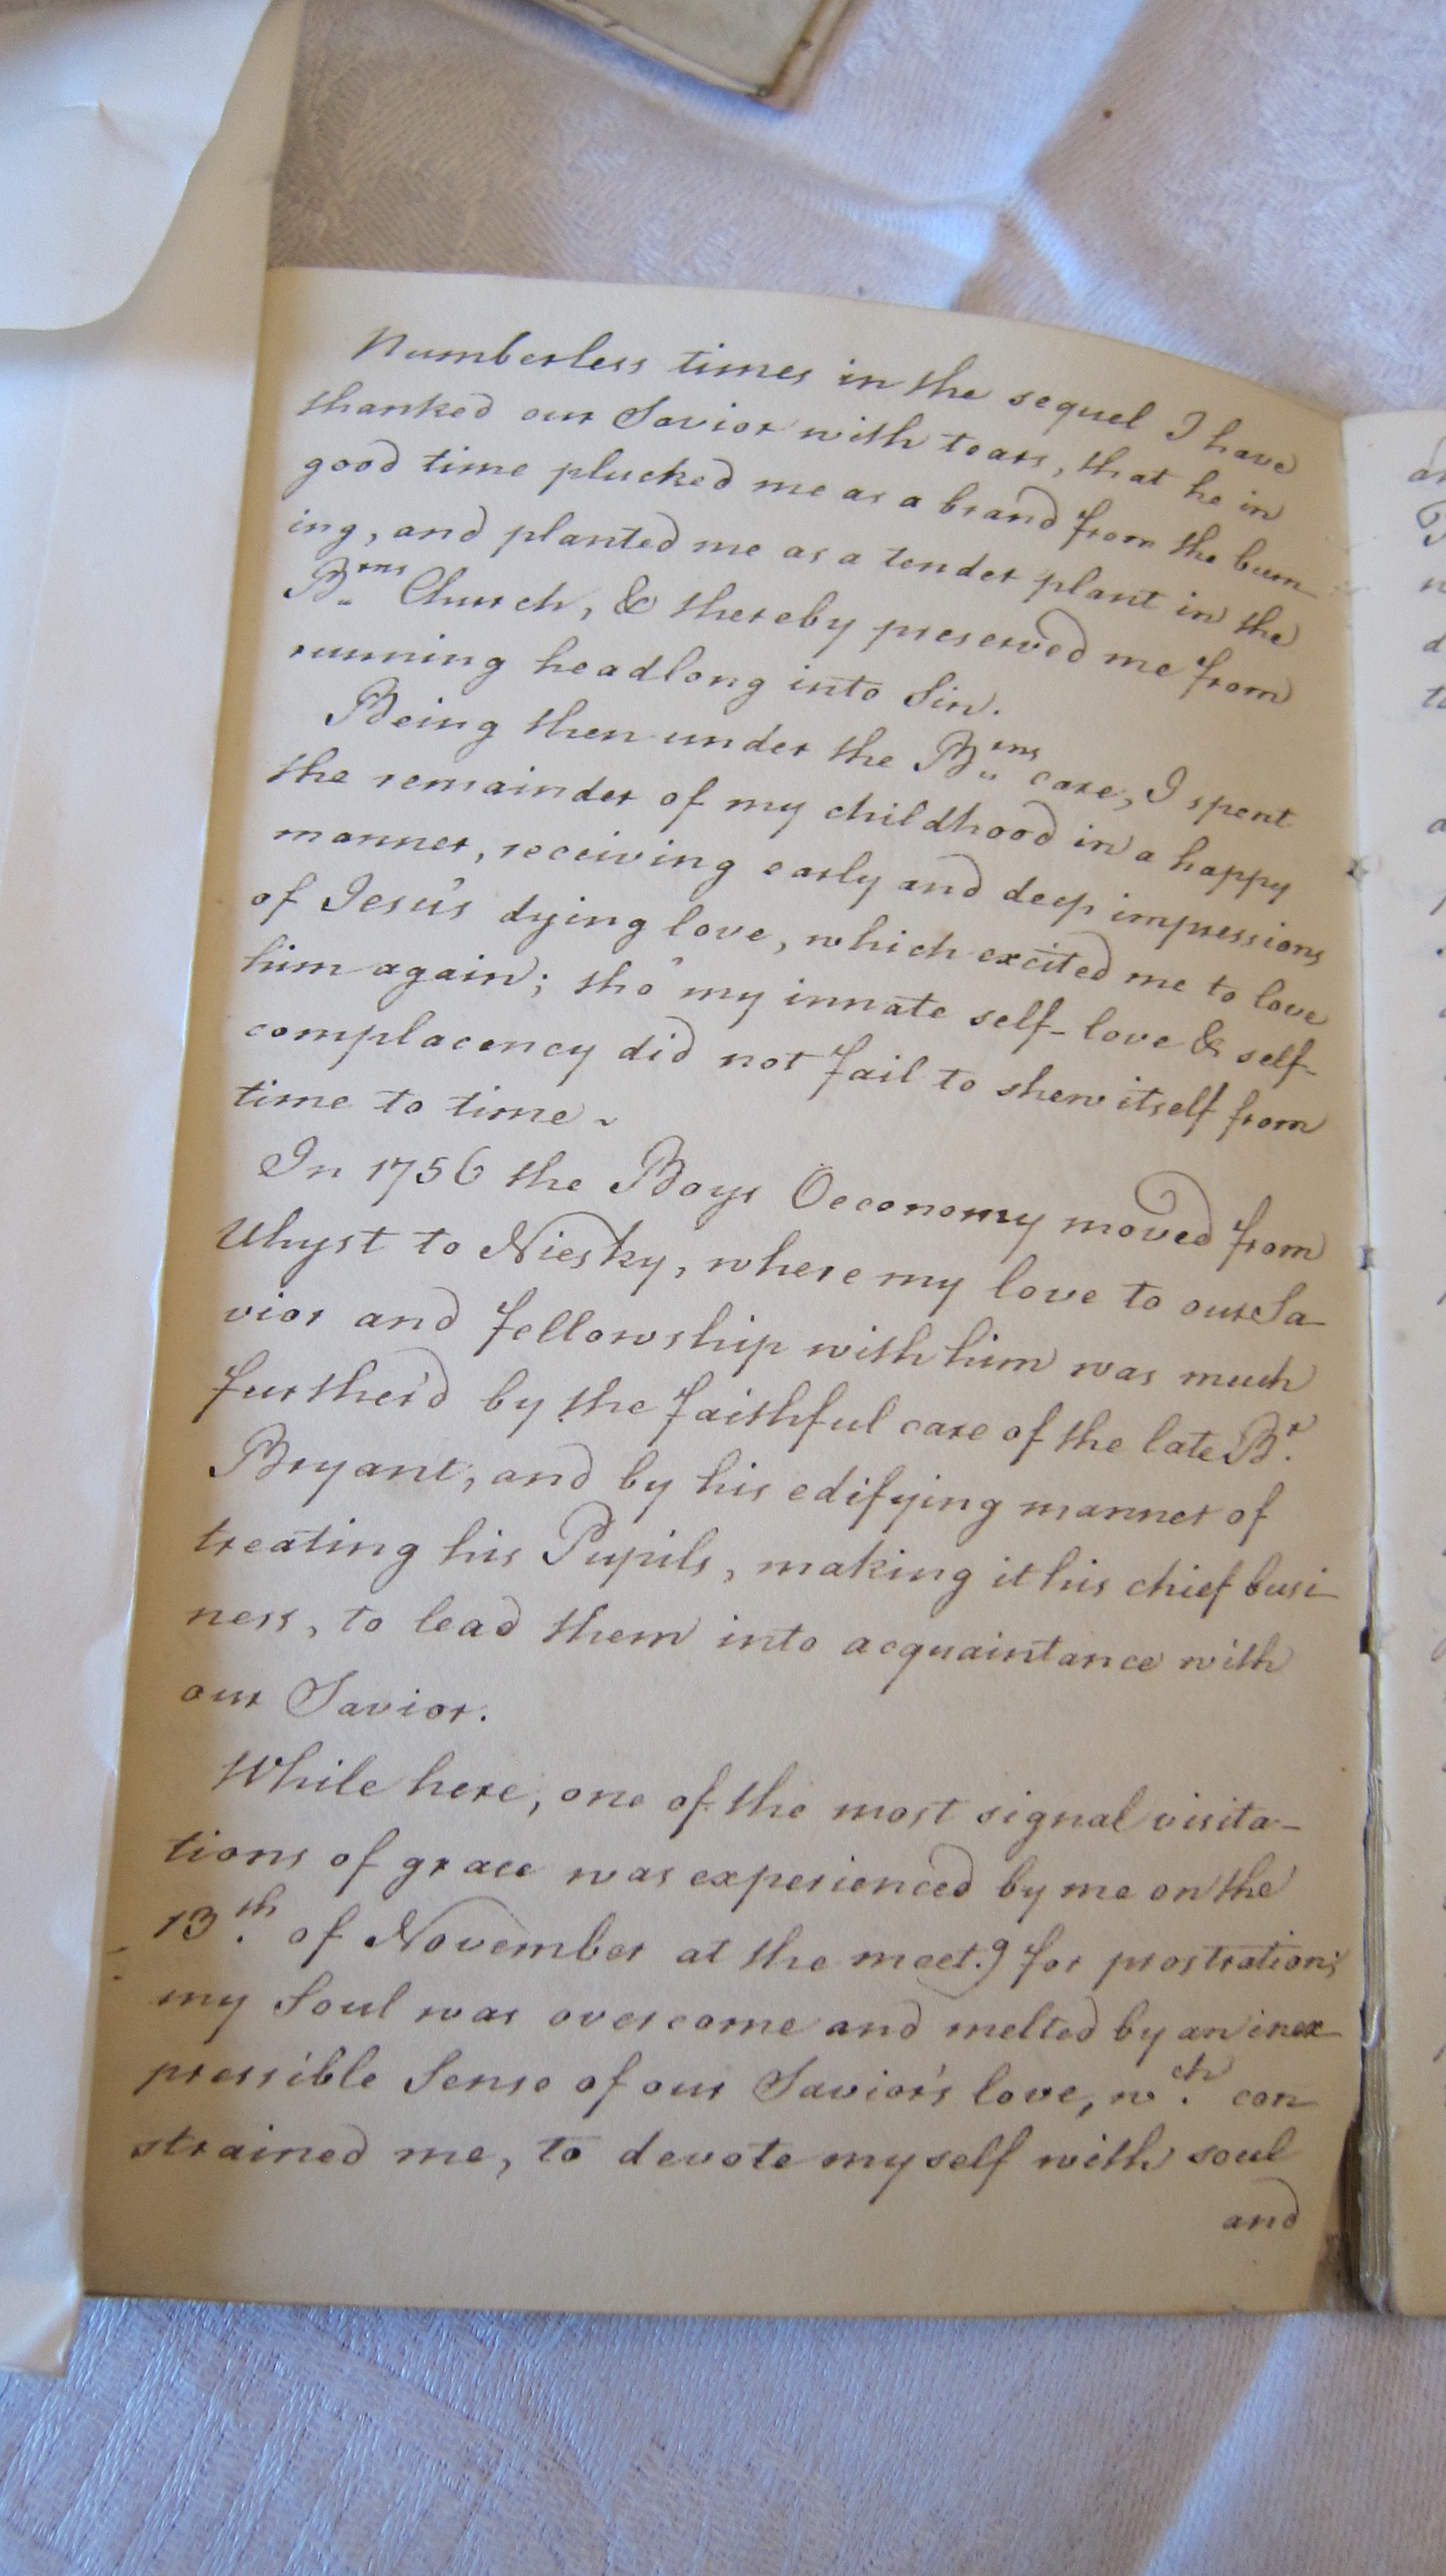 Numberless times in the sequel I have
thanked our Savior with tears, that he in
good time plucked me as a brand from the burn
ing, and planted me as a tender plant in the
Brns Church, & thereby preserved me from
running headlong into Sin.
Being then under the Brns care, I spent
the remainder of my childhood in a happy
manner, receiving early and deep impressions
of Jesu's dying love, which excited me to love
him again; tho' my innate self-love & self-
complacency did not fail to shew itself from
time to time.
In 1756 the Boys Oeconomy moved from
Uhyst to Niesky, where my love to our Sa-
vior and fellowship with him was much
further'd by the faithful care of the late Br.
Bryant, and by his edifying manner of
treating his Pupils, making it his chief busi-
ness, to lead them into acquaintance with
our Savior.
While here, one of the most signal visita-
tions of grace was experienced by me on the
13th. of November at the meet.g for prostration;
my Soul was overcome and melted by an inex-
pressible Sense of our Savior's love, wch. con
strained me, to devote myself with soul
and